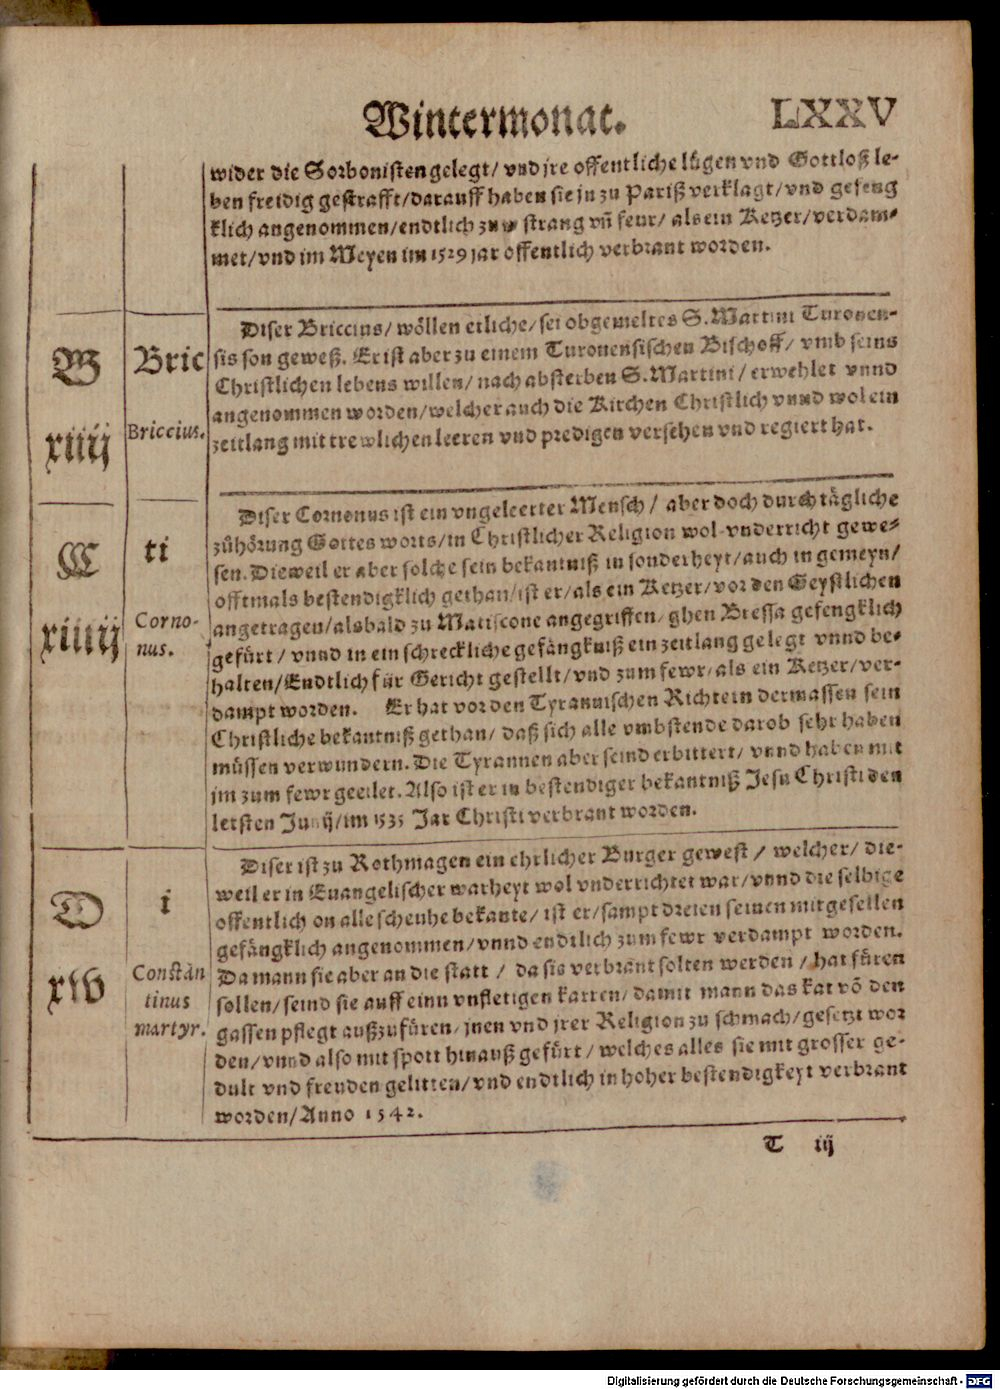 Wintermonat. LXXV
wider die Sorbonisten gelegt/ vnd jre offentliche lügen vnd Gottloß le-
ben freidig gestrafft/darauff haben sie jn zu Pariß verklagt/vnd gefeng
klich angenommen/endtlich zum strang vñ feur/ als ein Ketzer/verdam-
met/vnd im Meyen im 1529 jar offentlich verbrant worden.
B
xiiij
Bric
Briccius.
Diser Briccius/ wöllen etliche/ sei obgemeltes S.Martini Turonen-
sis son geweß. Er ist aber zu einem Turonensischen Bischoff/ vmb seins
Christlichen lebens willen/ nach absterben S.Martini/ erwehlet vnnd
angenommen worden/welcher auch die Kirchen Christlich vnnd wol ein
zeitlang mit trewlichen leeren vnd predigen versehen vnd regiert hat.
C
xiiiij
ti
Corno-
nus.
Diser Cornonus ist ein vngeleerter Mensch/ aber doch durch tägliche
zühörung Gottes worts/in Christlicher Religion wol vnderricht gewe-
sen. Dieweil er aber solche sein bekantniß in sonderheyt/auch in gemeyn/
offtmals bestendigklich gethan/ist er/als ein Ketzer/vor den Geystlichen
angetragen/alsbald zu Matiscone angegriffen/ ghen Bressa gefengklich
gefürt/ vnnd in ein schreckliche gefängkniß ein zeitlang gelegt vnnd be-
halten/Endtlich für Gericht gestellt/vnd zum fewr/als ein Ketzer/ver-
dampt worden. Er hat vor den Tyrannischen Richtern dermassen sein
Christliche bekantniß gethan/ daß sich alle vmbstende darob sehr haben
müssen verwundern. Die Tyrannen aber seind erbittert/ vnnd haben mit
jm zum fewr geeilet. Also ist er in bestendiger bekantniß Jesu Christi den
letsten Junij/im 1535 Jar Christi verbrant worden.
D
xiv
i
Constan
tinus
martyr.
Diser ist zu Rothmagen ein ehrlicher Burger gewest/ welcher/ die-
weil er in Euangelischer warheyt wol vnderrichtet war/vnnd die selbige
offentlich on alle scheuhe bekante/ ist er/sampt dreien seinen mitgesellen
gefängklich angenommen/vnnd endtlich zum fewr verdampt worden.
Da mann sie aber an die statt/ da sis verbrant solten werden/ hat füren
sollen/seind sie auff einn vnfletigen karren/ damit mann das kat võ den
gassen pflegt außzufüren/jnen vnd jrer Religion zu schmach/gesetzt wor
den/vnnd also mit spott hinauß gefürt/welches alles sie mit grosser ge-
dult vnd freuden gelitten/vnd endtlich in hoher bestendigkeyt verbrant
worden/Anno 1542.
T iij
Digitalisierung gefördert durch die Deutsche Forschungsgemeinschaft - DFG